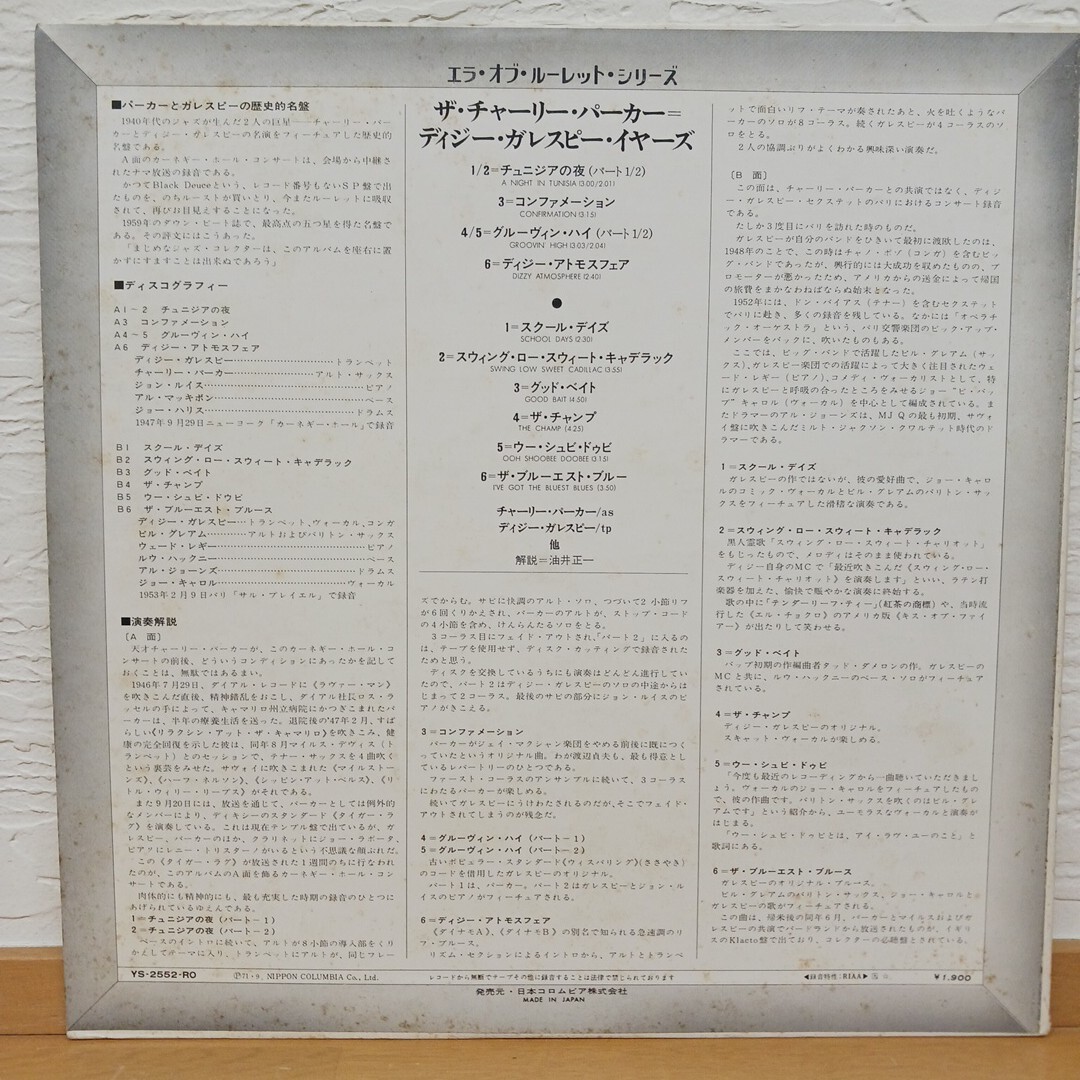 エラ・オブ・ルーレット・シリーズ
■パーカーとガレスピーの歴史的名盤
1940年代のジャズが生んだ2人の巨星――チャーリー・パー
カーとディジー・ガレスピーの名演をフィーチュアした歴史的
名盤である。
A面のカーネギー・ホール・コンサートは、会場から中継され
たナマ放送の録音である。
かつてBlack Deuceという、レコード番号もないSP盤で出
たものを、のちルーストが買いとり、今またルーレットに吸収さ
れて、再びお目見えすることになった。
1959年のダウン・ビート誌で、最高点の五つ星を得た名盤であ
る。その評文にはこうあった。
「まじめなジャズ・コレクターは、このアルバムを座右に置
かずにすますことは出来ぬであろう」
■ディスコグラフィー
A1～2 チュニジアの夜
A3 コンファメーション
A4～5 グルーヴィン・ハイ
A6 ディジー・アトモスフェア
ディジー・ガレスピー……トランペット
チャーリー・パーカー……アルト・サックス
ジョン・ルイス……ピアノ
アル・マッキボン……ベース
ジョー・ハリス……ドラムス
1947年9月29日ニューヨーク「カーネギー・ホール」で録音
B1 スクール・デイズ
B2 スウィング・ロー・スウィート・キャデラック
B3 グッド・ベイト
B4 ザ・チャンプ
B5 ウー・シュビ・ドゥビ
B6 ザ・ブルーエスト・ブルース
ディジー・ガレスピー…トランペット、ヴォーカル、コンガ
ビル・グレアム……アルトおよびバリトン・サックス
ウェード・レギー……ピアノ
ルウ・ハックニー……ベース
アル・ジョーンズ……ドラムス
ジョー・キャロル……ヴォーカル
1953年2月9日パリ「サル・プレイエル」で録音
■演奏解説
〔A 面〕
天才チャーリー・パーカーが、このカーネギー・ホール・コ
ンサートの前後、どういうコンディションにあったかを記して
おくことは、無駄ではあるまい。
1946年7月29日、ダイアル・レコードに《ラヴァー・マン》
を吹きこんだ直後、精神錯乱をおこし、ダイアル社長ロス・ラ
ッセルの手によって、キャマリロ州立病院にかつぎこまれたパ
ーカーは、半年の療養生活を送った。退院後の'47年2月、すば
らしい《リラクシン・アット・ザ・キャマリロ》を吹きこみ、健
康の完全回復を示した彼は、同年8月マイルス・デヴィス(ト
ランペット)とのセッションで、テナー・サックスを4曲吹く
という裏芸をみせた。サヴォイに吹きこまれた《マイルストー
ンズ》、《ハーフ・ネルソン》、《シッピン・アット・ベルス》、《リ
トル・ウィリー・リープス》がそれである。
また9月20日には、放送を通じて、パーカーとしては例外的
なメンバーにより、ディキシーのスタンダード《タイガー・ラ
グ》を演奏している。これは現在テンプル盤で出ているが、ガ
レスピー、パーカーのほか、クラリネットにジョー・ラポータ、
ピアノにレニー・トリスターノがいるという不思議な顔ぶれだ。
この《タイガー・ラグ》が放送された1週間のちに行なわれ
たのが、このアルバムのA面を飾るカーネギー・ホール・コン
サートである。
肉体的にも精神的にも、最も充実した時期の録音のひとつに
あげられているゆえんである。
1＝チュニジアの夜(パート－1)
2＝チュニジアの夜(パート－2)
ベースのイントロに続いて、アルトが8小節の導入部をくり
かえしてテーマに入り、トランペットが、同じフレー
ザ・チャーリー・パーカー＝
ディジー・ガレスピー・イヤーズ
1/2＝チュニジアの夜(パート1/2)
A NIGHT IN TUNISIA (3:00/2:01)
3＝コンファメーション
CONFIRMATION (3:15)
4/5＝グルーヴィン・ハイ(パート1/2)
GROOVIN' HIGH (3:03/2:04)
6＝ディジー・アトモスフェア
DIZZY ATMOSPHERE (2:40)
●
1＝スクール・デイズ
SCHOOL DAYS (2:30)
2＝スウィング・ロー・スウィート・キャデラック
SWING LOW SWEET CADILLAC (3:55)
3＝グッド・ベイト
GOOD BAIT (4:50)
4＝ザ・チャンプ
THE CHAMP (4:25)
5＝ウー・シュビ・ドゥビ
OOH SHOOBEE DOOBEE (3:15)
6＝ザ・ブルーエスト・ブルー
I'VE GOT THE BLUEST BLUES (3:50)
チャーリー・パーカー/as
ディジー・ガレスピー/tp
他
解説＝油井正一
ズでからむ。サビに快調のアルト・ソロ、つづいて2小節リフ
が6回くりかえされ、パーカーのアルトが、ストップ・コード
の4小節を含め、けんらんたるソロをとる。
3コーラス目にフェイド・アウトされ、「パート2」に入るの
は、テープを使用せず、ディスク・カッティングで録音された
ためと思う。
ディスクを交換しているうちにも演奏はどんどん進行してい
たので、パート2はディジー・ガレスピーのソロの中途からは
じまって2コーラス。最後のサビの部分にジョン・ルイスのピ
アノがきこえる。
3＝コンファメーション
パーカーがジェイ・マクシャン楽団をやめる前後に既につく
っていたというオリジナル曲。わが渡辺貞夫も、最も得意とし
ているレパートリーのひとつである。
ファースト・コーラスのアンサンブルに続いて、3コーラス
にわたるパーカーが楽しめる。
続いてガレスピーにうけわたされるのだが、そこでフェイド・
アウトされてしまうのが残念だ。
4＝グルーヴィン・ハイ(パート－1)
5＝グルーヴィン・ハイ(パート－2)
古いポピュラー・スタンダード《ウィスパリング》(ささやき)
のコードを借用したガレスピーのオリジナル。
パート1は、パーカー。パート2はガレスピーとジョン・ル
イスのピアノがフィーチュアされる。
6＝ディジー・アトモスフェア
《ダイナモA》、《ダイナモB》の別名で知られる急速調のリ
フ・ブルース。
リズム・セクションによるイントロから、アルトとトランペ
ットで面白いリフ・テーマが奏されたあと、火を吐くようなパ
ーカーのソロが8コーラス。続くガレスピーが4コーラスのソ
ロをとる。
2人の協調ぶりがよくわかる興味深い演奏だ。
〔B 面〕
この面は、チャーリー・パーカーとの共演ではなく、ディジ
ー・ガレスピー・セクステットのパリにおけるコンサート録音
である。
たしか3度目にパリを訪れた時のものだ。
ガレスピーが自分のバンドをひきいて最初に渡欧したのは、
1948年のことで、この時はチャノ・ポゾ(コンガ)を含むビッ
グ・バンドであったが、興行的には大成功を収めたものの、プ
ロモーターが悪かったため、アメリカからの送金によって帰国
の旅費をまかなわねばならぬ始末となった。
1952年には、ドン・バイアス(テナー)を含むセクステット
でパリに赴き、多くの録音を残している。なかには「オペラチ
ック・オーケストラ」という、パリ交響楽団のピック・アップ・
メンバーをバックに、吹いたものもある。
ここでは、ビッグ・バンドで活躍したビル・グレアム(サッ
クス)、ガレスピー楽団での活躍によって大きく注目されたウェ
ード・レギー(ピアノ)、コメディ・ヴォーカリストとして、特
にガレスピーと呼吸の合ったところをみせるジョー“ビ・バッ
プ”キャロル(ヴォーカル)を中心として編成されている。ま
たドラマーのアル・ジョーンズは、MJQの最も初期、サヴォ
イ盤に吹きこんだミルト・ジャクソン・クワルテット時代のド
ラマーである。
1＝スクール・デイズ
ガレスピーの作ではないが、彼の愛好曲で、ジョー・キャロ
ルのコミック・ヴォーカルとビル・グレアムのバリトン・サッ
クスをフィーチュアした滑稽な演奏である。
2＝スウィング・ロー・スウィート・キャデラック
黒人霊歌「スウィング・ロー・スウィート・チャリオット」
をもじったもので、メロディはそのまま使われている。
ディジー自身のMCで「最近吹きこんだ《スウィング・ロー・
スウィート・チャリオット》を演奏します」といい、ラテン打
楽器を加えた、愉快で賑やかな演奏に終始する。
歌の中に「テンダーリーフ・ティー」(紅茶の商標)や、当時流
行した《エル・チョクロ》のアメリカ版《キス・オブ・ファイ
アー》が出たりして笑わせる。
3＝グッド・ベイト
バップ初期の作編曲者タッド・ダメロンの作。ガレスピーの
MCと共に、ルウ・ハックニーのベース・ソロがフィーチュア
されている。
4＝ザ・チャンプ
ディジー・ガレスピーのオリジナル。
スキャット・ヴォーカルが楽しめる。
5＝ウー・シュビ・ドゥビ
「今度も最近のレコーディングから一曲聴いていただきまし
ょう。ヴォーカルのジョー・キャロルをフィーチュアしたもの
で、彼の作曲です。バリトン・サックスを吹くのはビル・グレ
アムです」という紹介から、ユーモラスなヴォーカルと演奏が
はじまる。
「ウー・シュビ・ドゥビとは、アイ・ラヴ・ユーのこと」と
歌詞にある。
6＝ザ・ブルーエスト・ブルース
ガレスピーのオリジナル・ブルース。
ビル・グレアムのバリトン・サックス、ジョー・キャロルと
ガレスピーの歌がフィーチュアされる。
この曲は、帰米後の同年6月、パーカーとマイルスおよびガ
レスピーの共演でバードランドから放送されたものが、イギリ
スのKlacto盤で出ており、コレクターの必聴盤とされている。
YS-2552-RO
Ⓟ71・9, NIPPON COLUMBIA Co., Ltd.
レコードから無断でテープその他に録音することは法律で禁じられております
◀録音特性:RIAA▶
¥1,900
発売元・日本コロムビア株式会社
MADE IN JAPAN